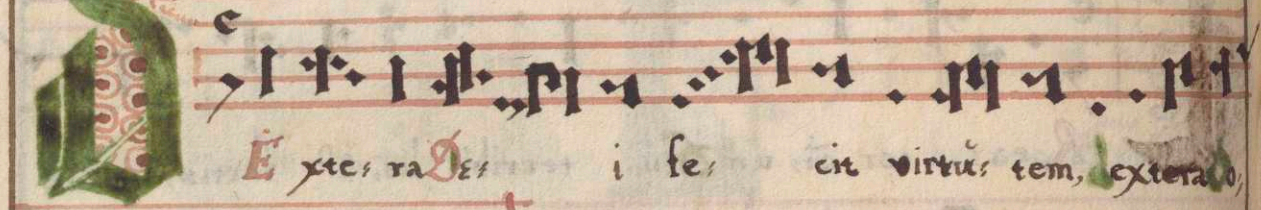 DExte: ra De: i fe: cit virtú: tem, dextera do: